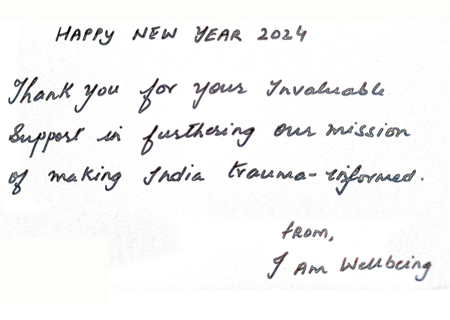 HAPPY NEW YEAR 2024
Thank you for your Invaluable
Support in furthering our mission
of making India trauma-informed.
from,
I Am Wellbeing